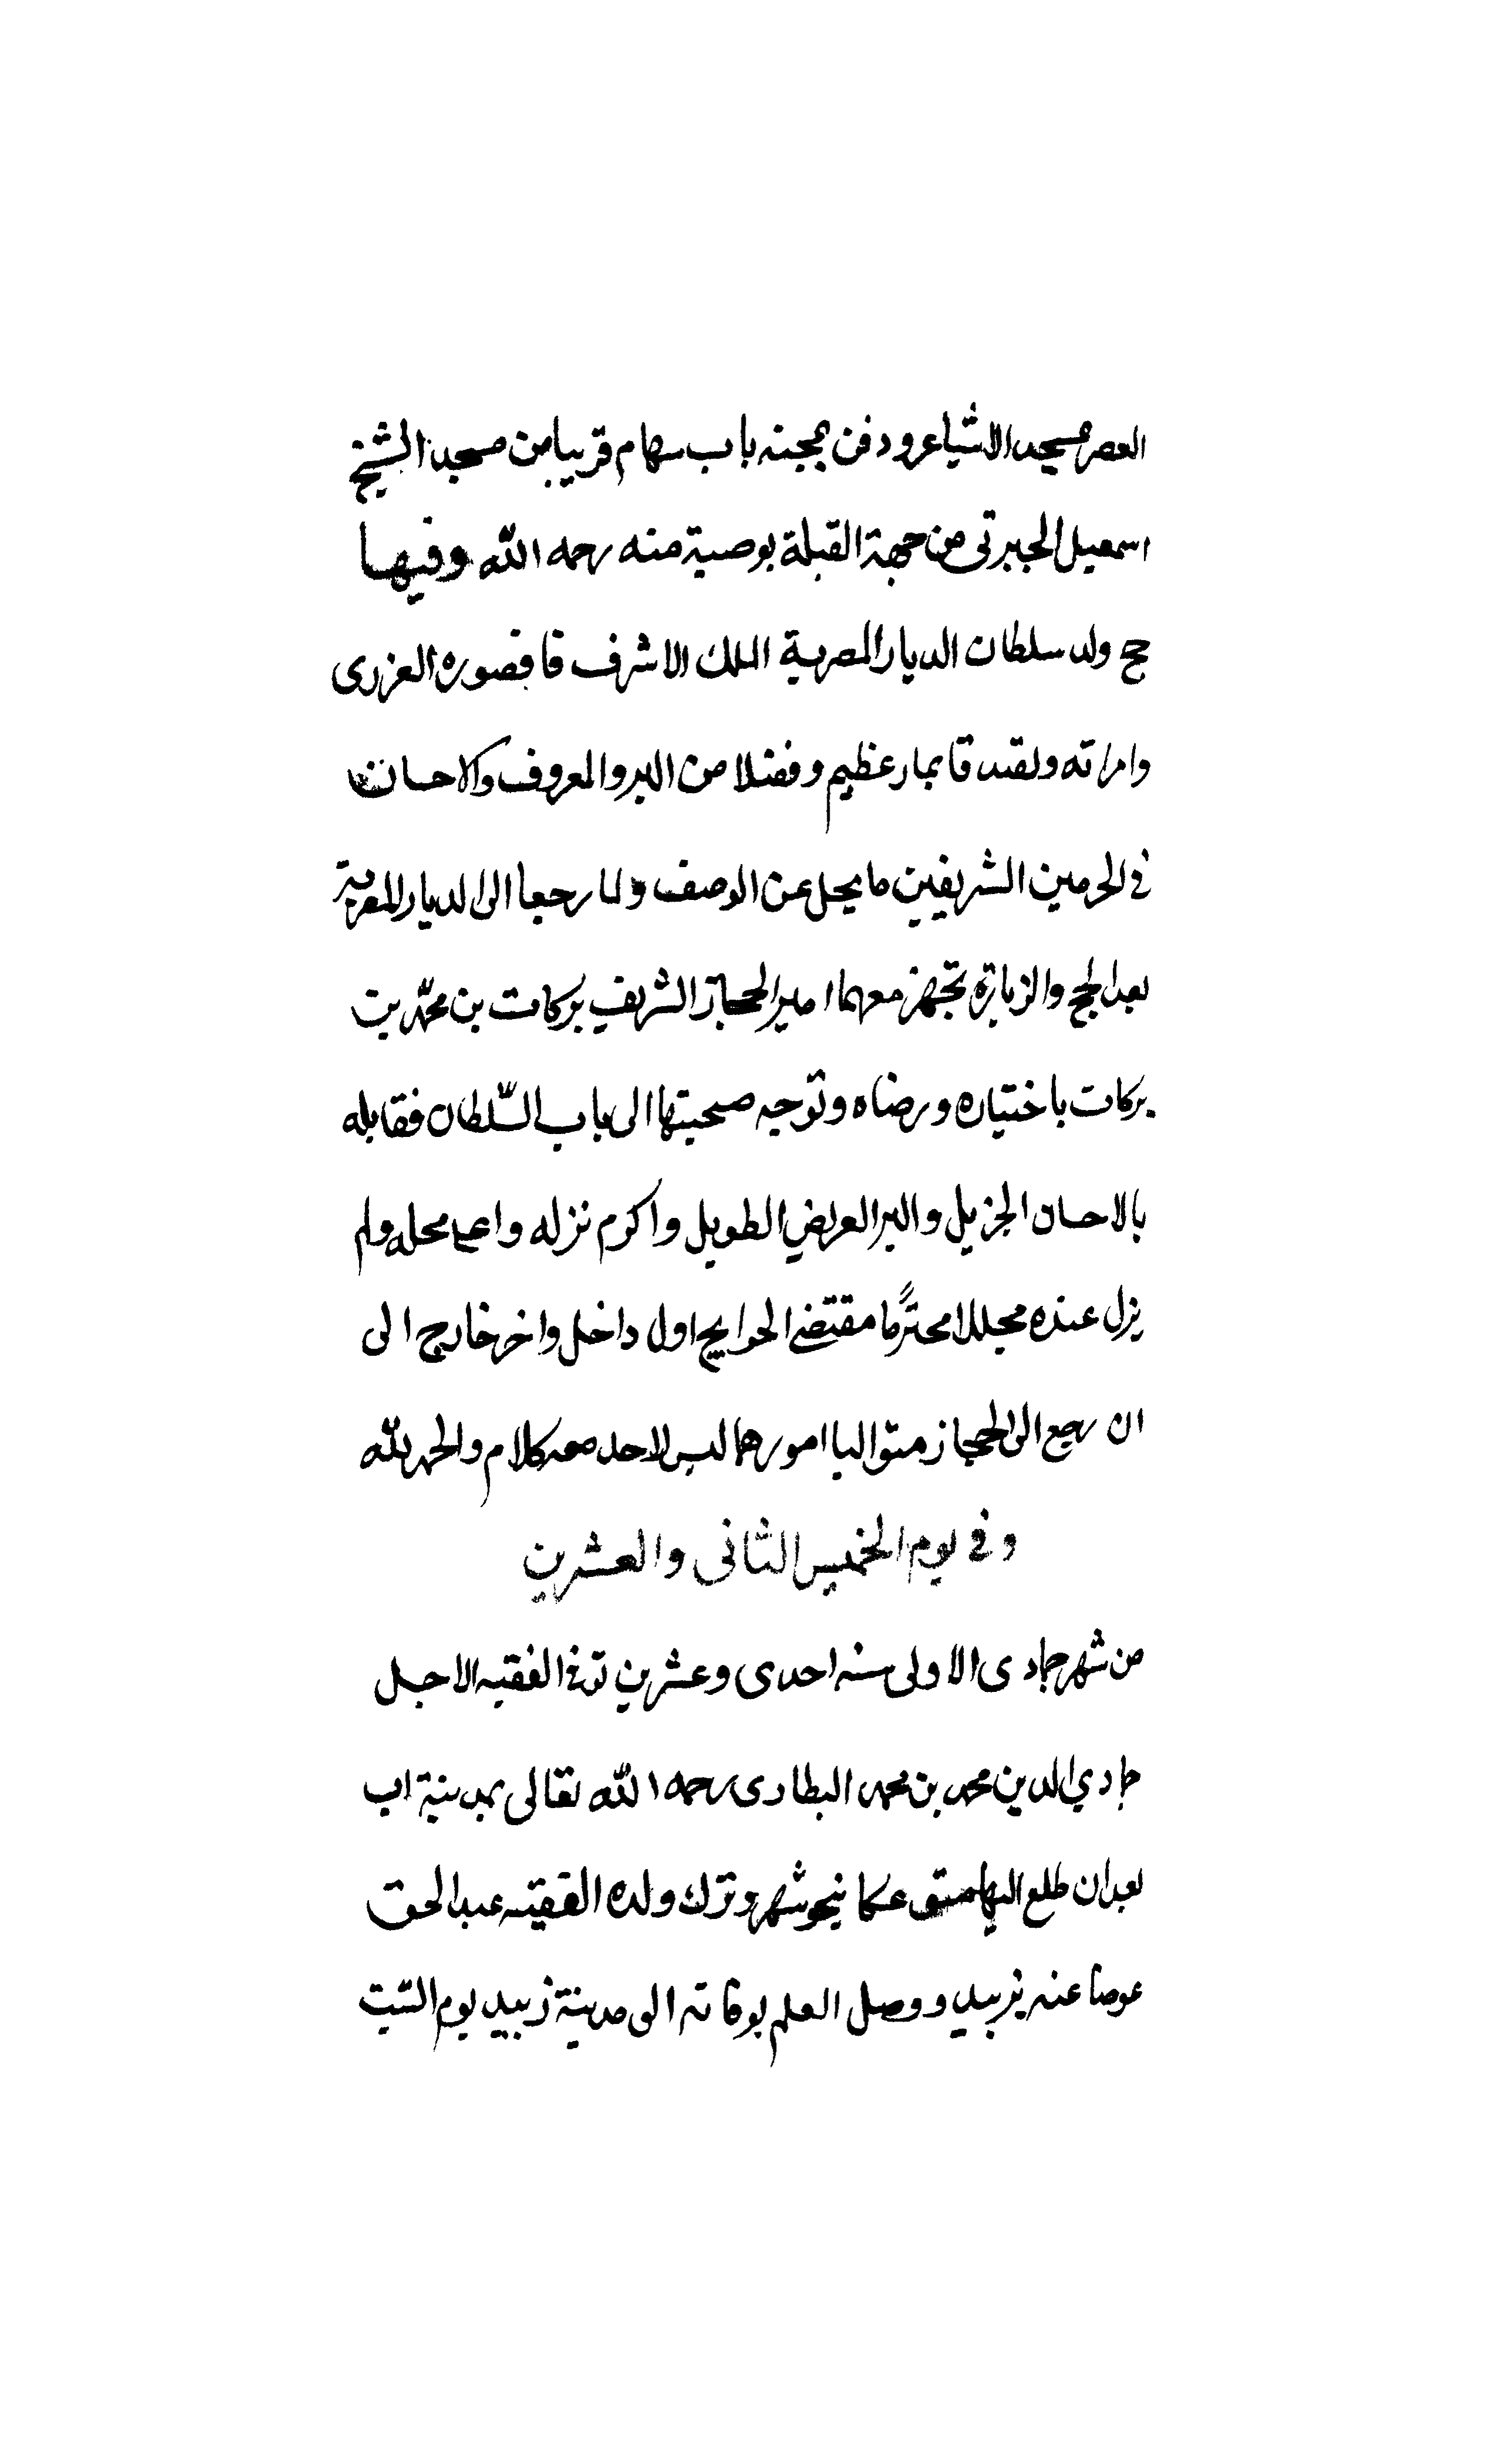 العصر بمسجد الاشياعر ودفن بمجنه باب سهام قريبا من مسجد الشيخ
اسمعيل الجبرتى من جهة القبلة بوصية منه رحمه الله وفيها
حج ولد سلطان الديار المصرية الملك الاشرف قانصوه الغزرى
وامراته ولقد قا بمار عظيم وفضلا من البر والمعروف والاحسان
فى الحرمين الشريفين ما يجل عن الوصف ولما رجعا الى الديار المصرية
بعد الحج والزيارة تجهز معهما امير الحجاز الشريف بركات بن محمد بن
بركات باختياره ورضاه وتوجه صحبتها الى باب السلطان فقابله
بالاحسان الجزيل والبر العريض الطويل واكرم نزله واعلى محله ولم
يزل عنده مجللا محترما مقتضى الحوايج اول داخل واخر خارج الى
ان رجع الى الحجاز متواليا امورهما ليس لاحد معه كلام والحمد لله
وفى يوم الخميس الثانى والعشرين
من شهر جمادى الاولى سنه احدى وعشرين توفى الفقيه الاجل
جمادي الدين محمد بن محمد البطارى رحمه الله تعالى بمدينة اب
بعد ان طلع اليها عكا نيحو شهر وترك ولده الفقيه عبد الحق
عوضا عنه بزبيد ووصل العلم بوفاته الى مدينة زبيد يوم السبت